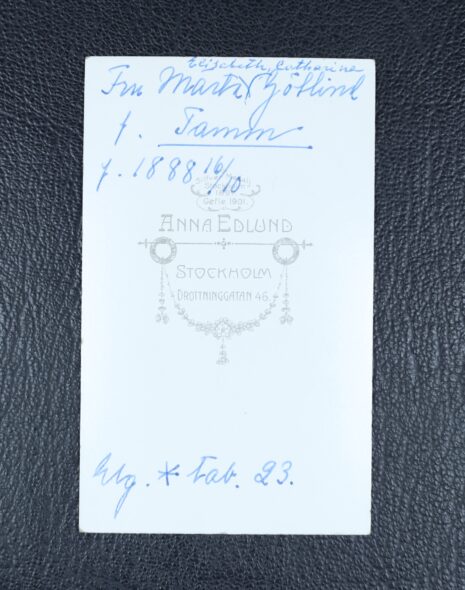 Elisabeth, Catharina
Fru Märta Götlind
f. Tamm
f. 1888 16/10
Stockholm
Gefle 1901.
ANNA EDLUND
STOCKHOLM
DROTTNINGGATAN 46.
* tab. 23.